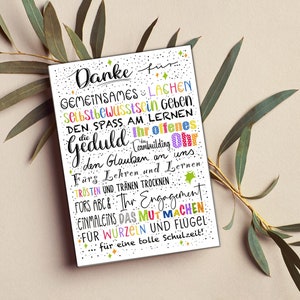 Danke für...
GEMEINSAMES LACHEN
SELBSTBEWUSSTSEIN Geben
DEN SPASS AM LERNEN
die Geduld Ihr offenes OHR
das Teambuilding
den Glauben an uns
Fürs Lehren und Lernen
TRÖSTEN UND TRÄNEN TROCKNEN
FÜRS ABC & Ihr Engagement
EINMALEINS DAS MUT MACHEN
FÜR WURZELN UND FLÜGEL
... für eine tolle Schulzeit!